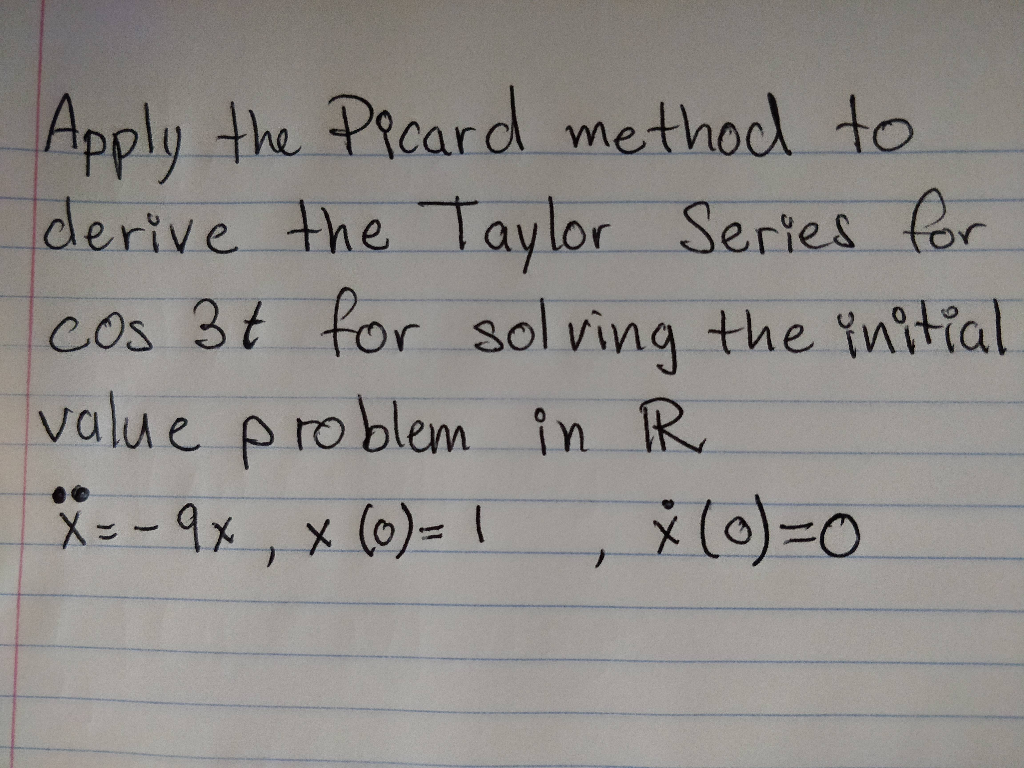 Apply the Picard method to
derive the Taylor Series for
cos 3t for solving the initial
value problem in ℝ
ẍ = - 9x , x (0) = 1 , ẋ (0) = 0